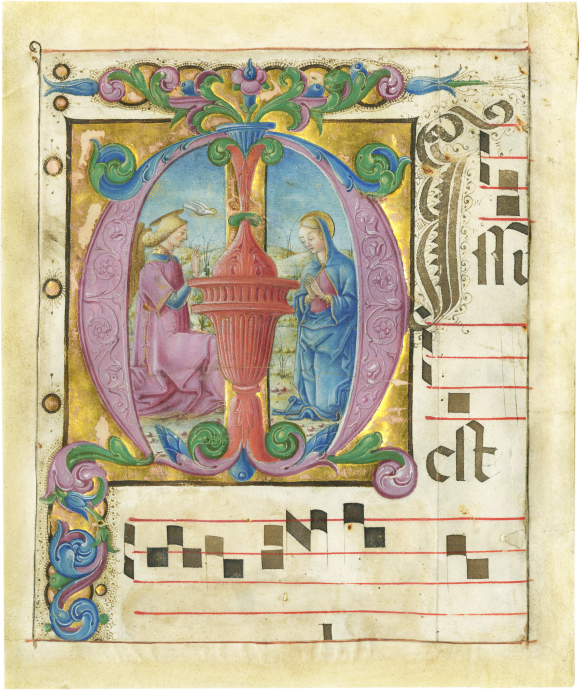 MIſſu
eſt